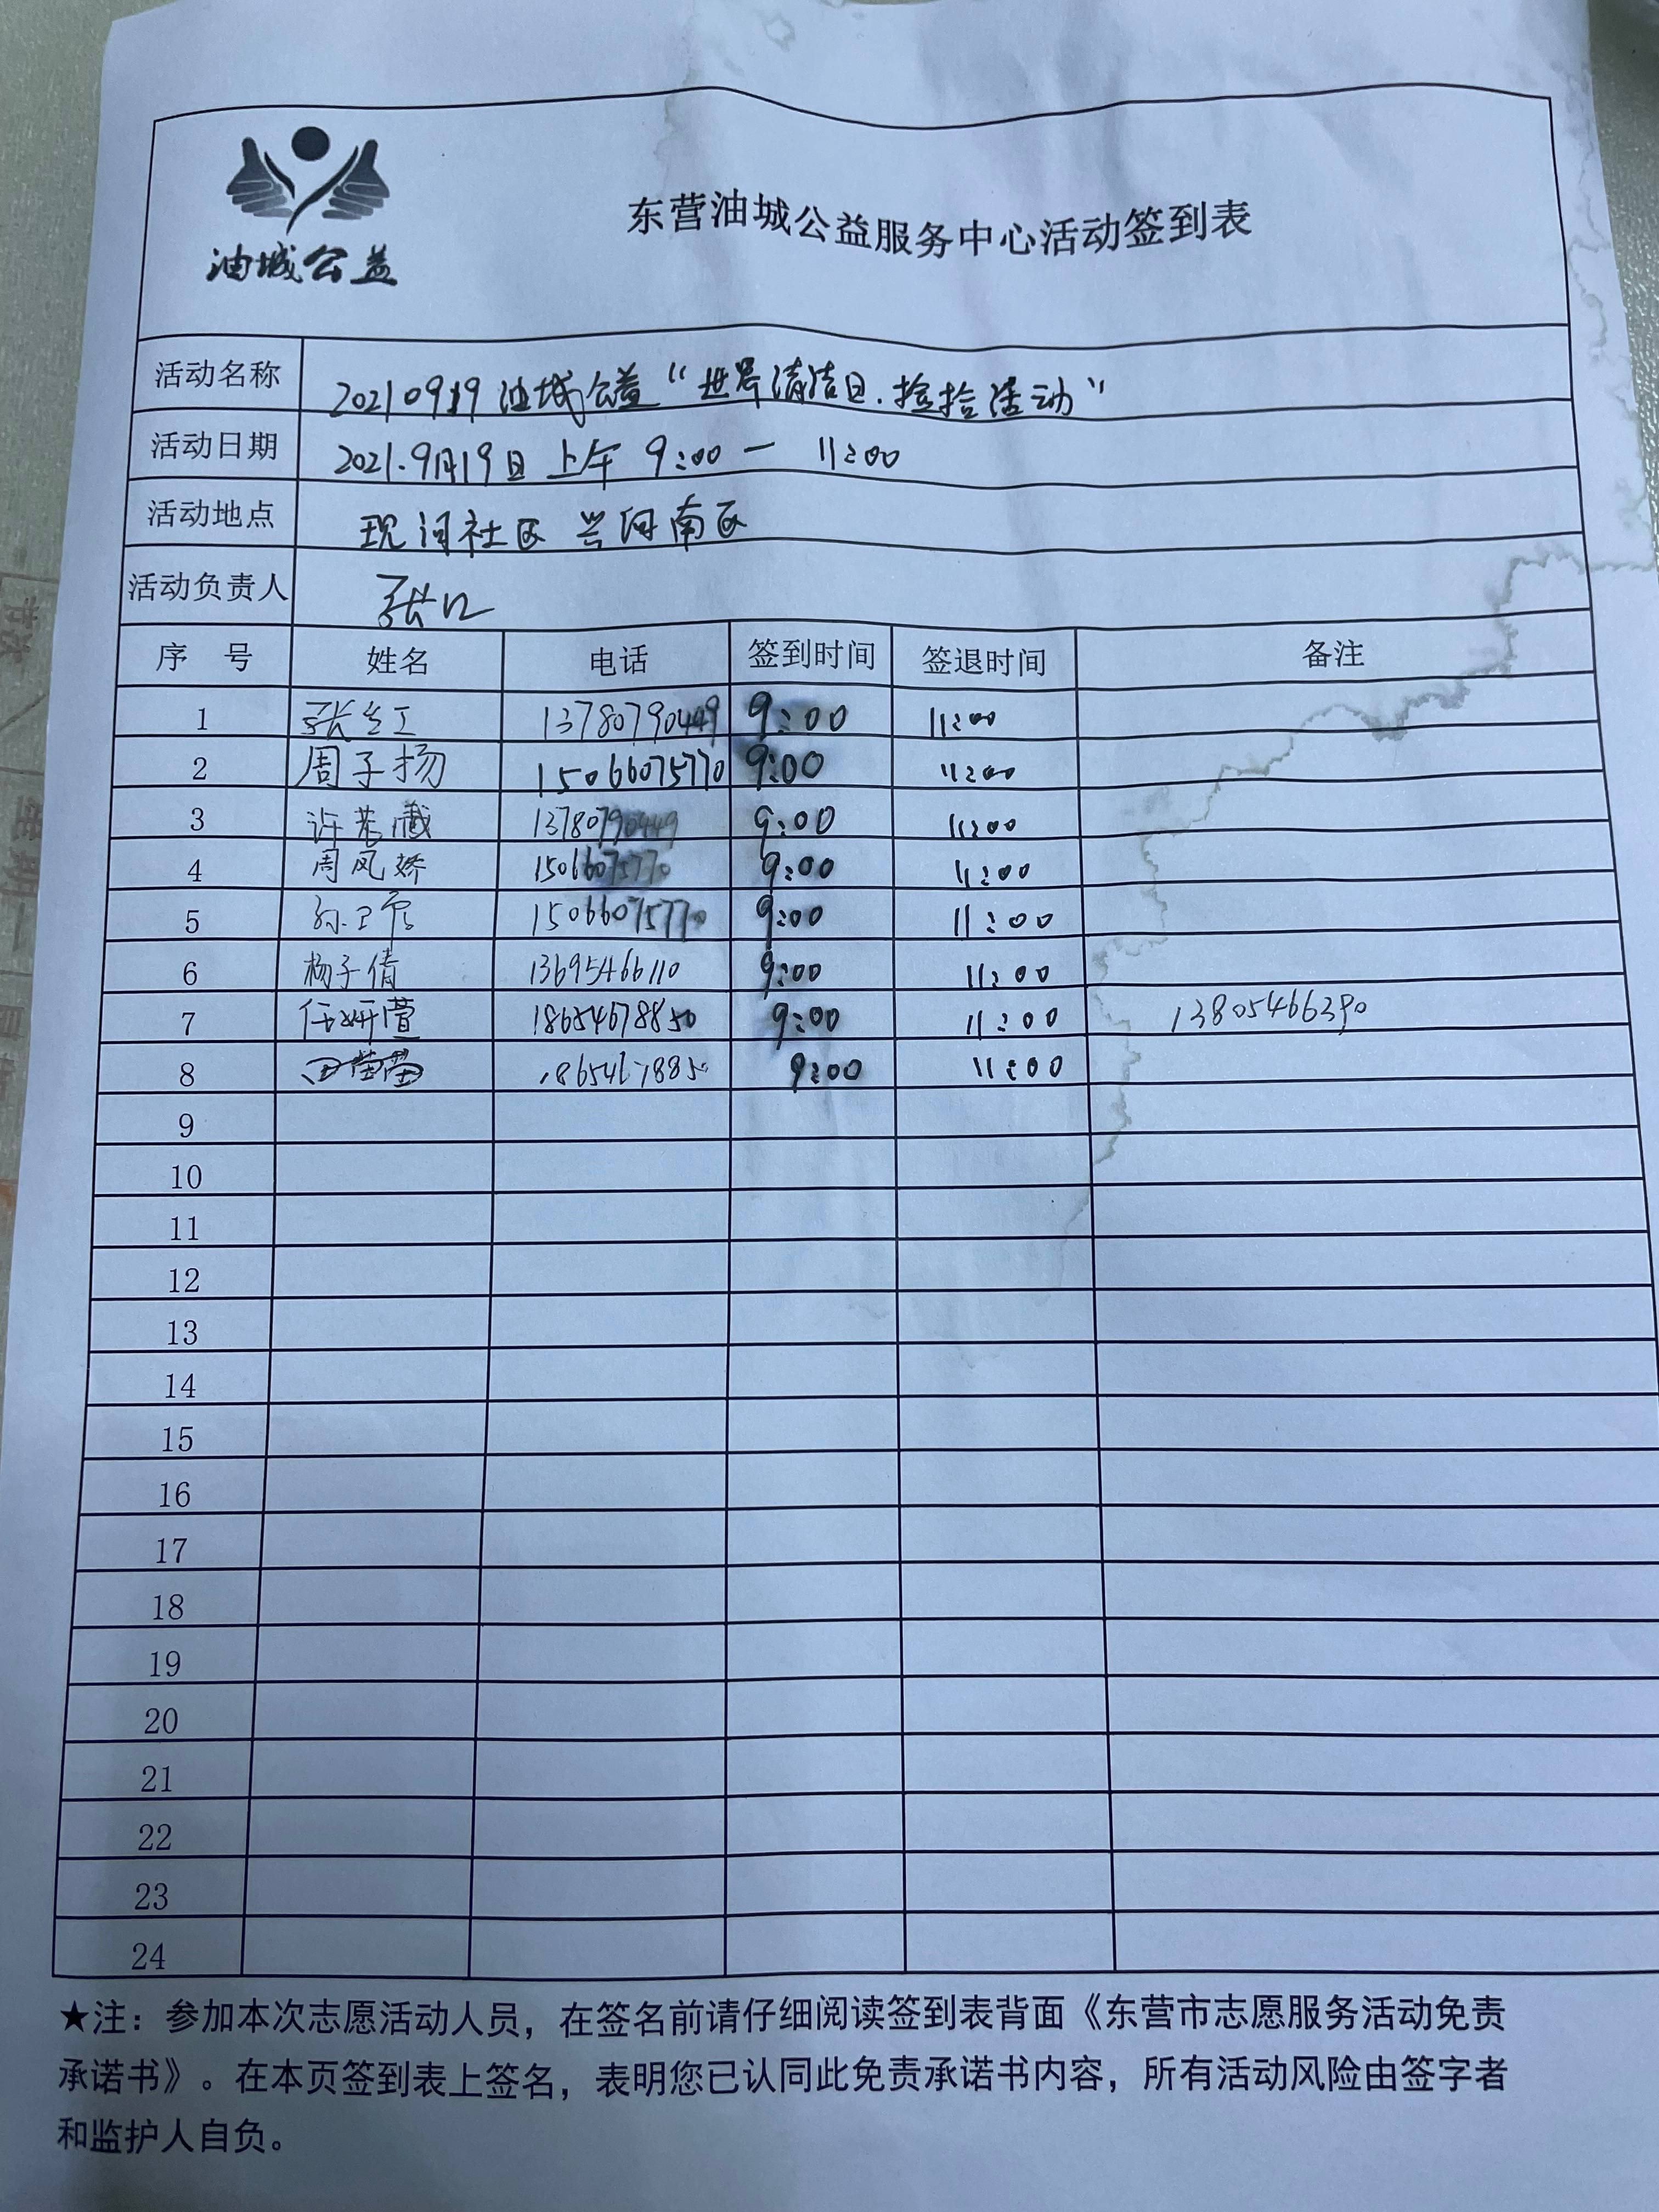 油城公益
东营油城公益服务中心活动签到表
活动名称 20210919油城公益“世界清洁日.捡拾活动”
活动日期 2021.9月19日上午 9:00 — 11:00
活动地点 现河社区 兴河南区
活动负责人 张红
序号 姓名 电话 签到时间 签退时间 备注
1 张红 13780790449 9:00 11:00
2 周子扬 15066075770 9:00 11:00
3 许 13780790449 9:00 11:00
4 周凤娇 15066075770 9:00 11:00
5 孙卫 15066075770 9:00 11:00
6 杨子倩 13695466110 9:00 11:00
7 任妍萱 18654678850 9:00 11:00 13805466390
8 田苗苗 18654678850 9:00 11:00
9
10
11
12
13
14
15
16
17
18
19
20
21
22
23
24
★注：参加本次志愿活动人员，在签名前请仔细阅读签到表背面《东营市志愿服务活动免责
承诺书》。在本页签到表上签名，表明您已认同此免责承诺书内容，所有活动风险由签字者
和监护人自负。